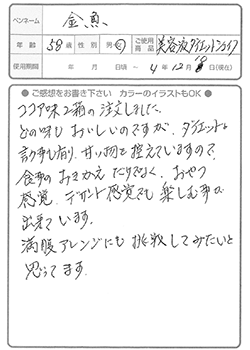 ペンネーム 金魚
年齢 58歳 性別 男・女 ご使用商品 美容液ダイエットシェイク
使用期間 年 月 日頃 ~ 4年12月18日(現在)
● ご感想をお書き下さい カラーのイラストもOK ●
ココア味2箱の注文しました。
どの味も おいしいのですが、ダイエットと
言う事も有り、甘い物を控えていますので、
食事の おきかえ だけでなく、おやつ
感覚、デザート感覚でも 楽しむ事が
出来ています。
満腹アレンジにも 挑戦してみたいと
思ってます。